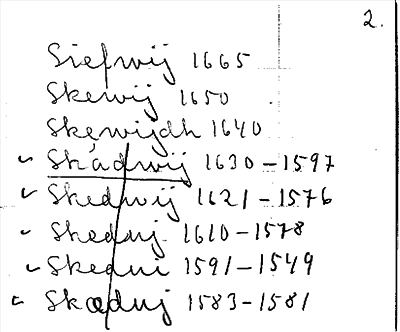 2.
Siefwij 1665
Skewij 1650
Skęwijdh 1640
Skádwij 1630-1597
Skedwij 1621-1576
Skednj 1610-1578
Skedni 1591-1549
Skædnj 1583-1581